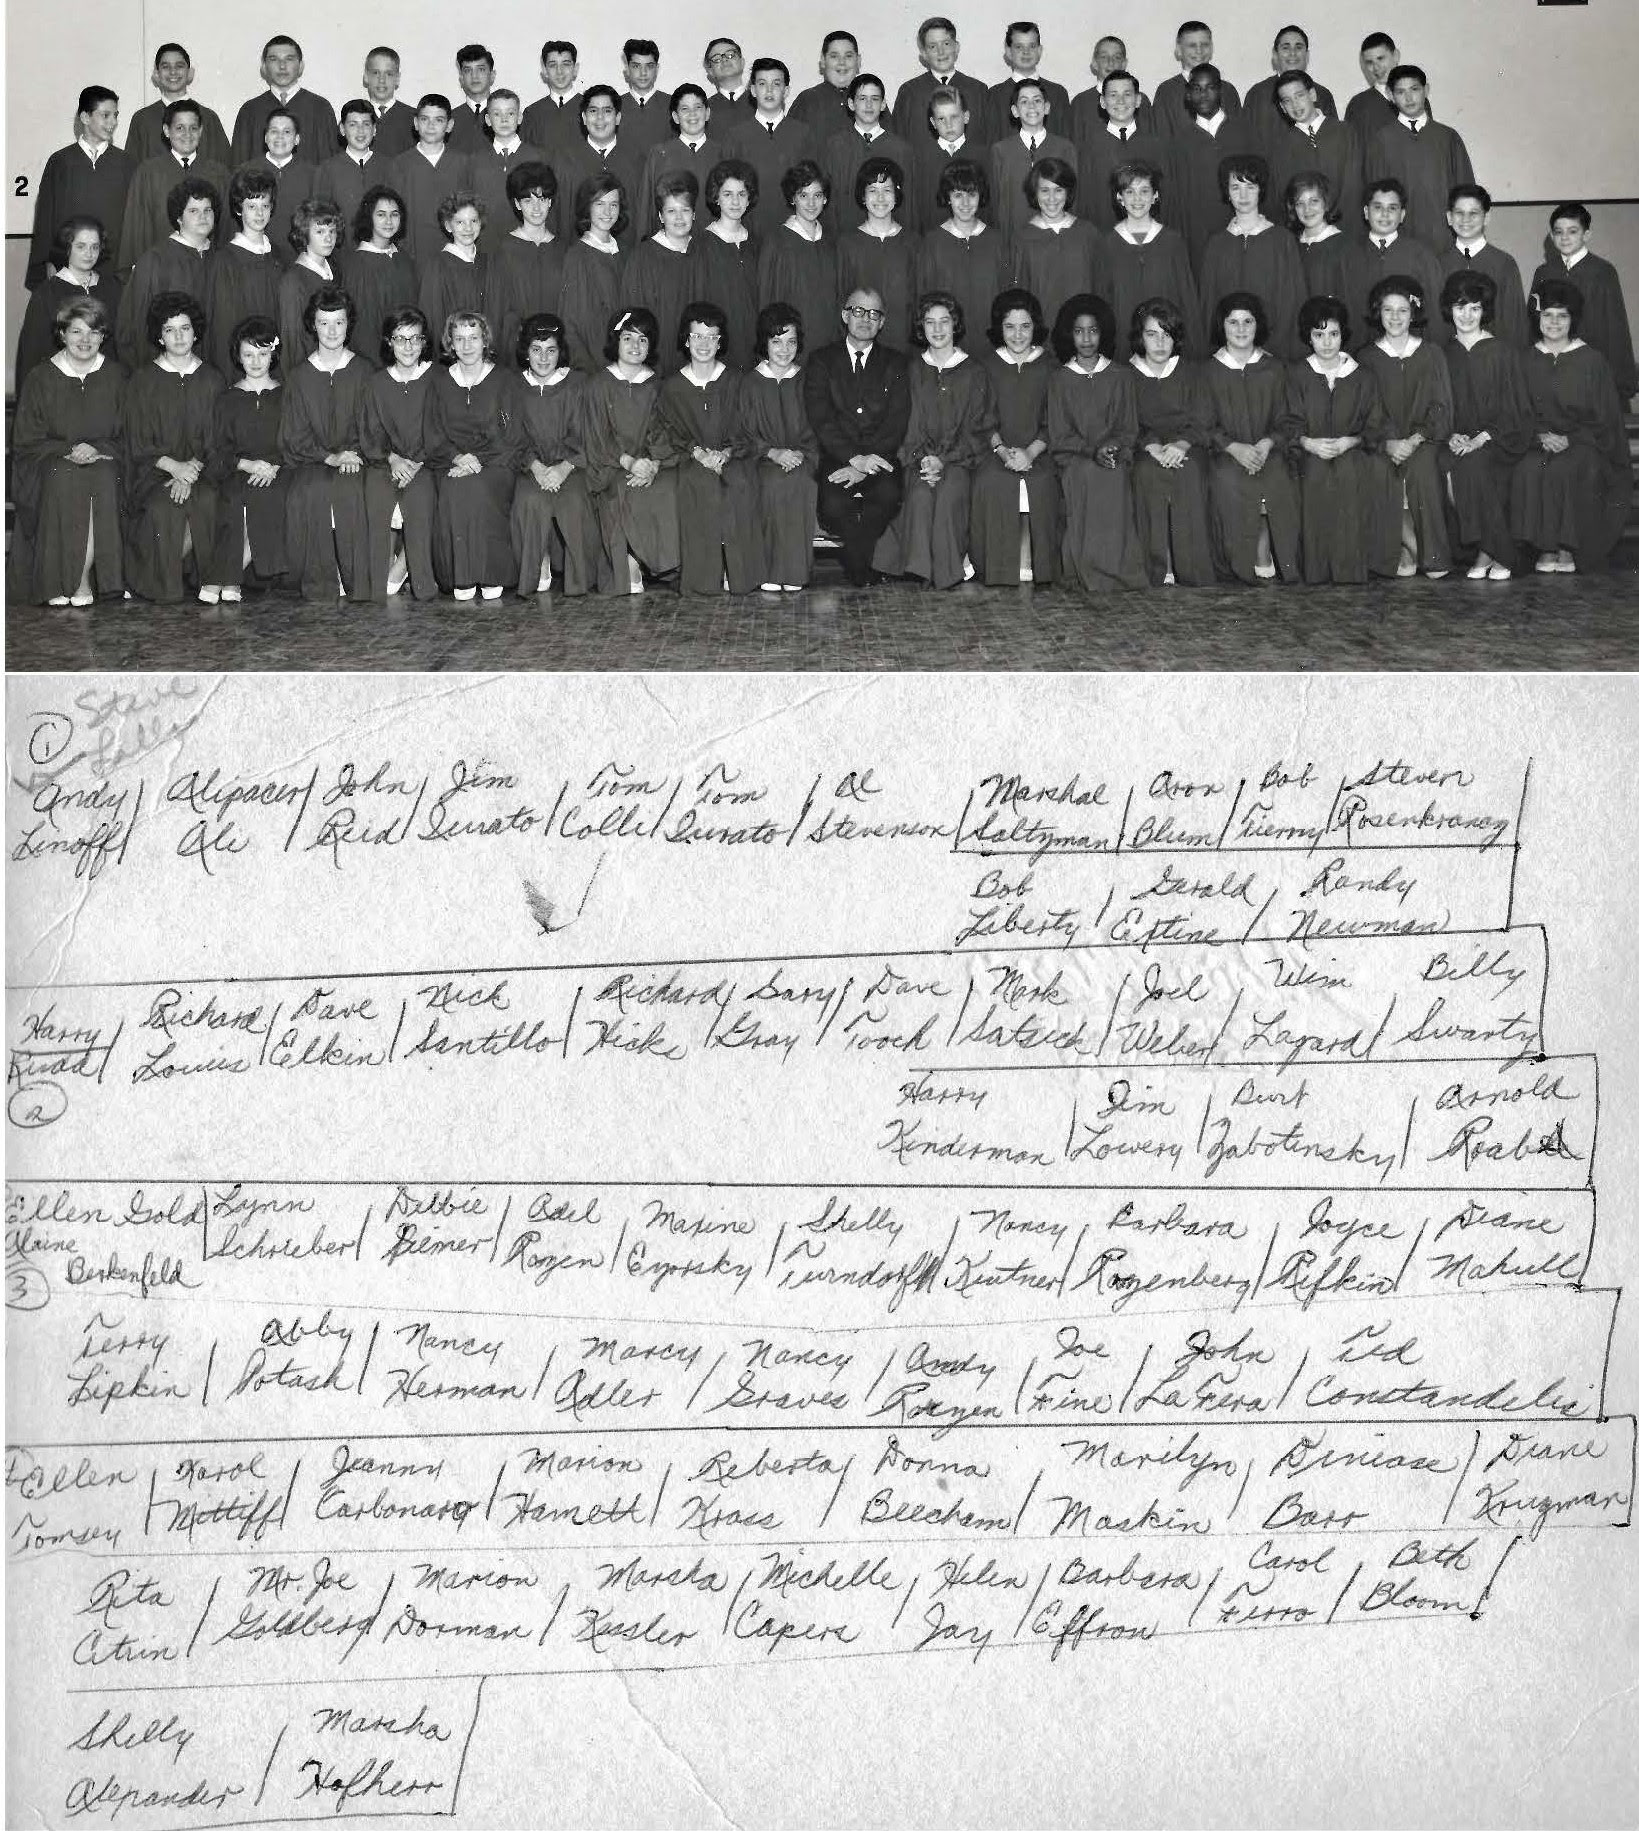 2
Steve
Lally
1
Andy / Alipacer / John / Jim / Tom / Tom / Al / Marshal / Aron / Bob / Steven
Linoff / Ali / Reid / Surato / Colli / Surato / Stevenson / Saltzman / Blum / Tierny / Rosenkrancz
Bob / Gerald / Randy
Liberty / Extine / Newman
Harry / Richard / Dave / Nick / Richard / Gary / Dave / Mark / Joel / Wim / Billy
Louis / Elkin / Santillo / Hicks / Gray / Tooch / Satsick / Weber / Lazard / Swarty
2
Harry / Jim / Burt / Arnold
Kinderman / Lowery / Zabotinsky / Raab
Ellen Gold / Lynn / Debbie / Adel / Maxine / Shelly / Nancy / Barbara / Joyce / Diane
Elaine / Schrieber / Biemer / Rozen / Ezorsky / Turndorf / Kintner / Rozenberg / Rifkin / Mahull
3 Berkenfeld
Terry / Abby / Nancy / Marcy / Nancy / Andy / Joe / John / Ted
Lipkin / Potash / Herman / Adler / Graves / Rozen / Fine / LaFera / Constandelis
Ellen / Karol / Jeanny / Marion / Roberta / Donna / Marilyn / Diniase / Diane
Tomsey / Mittiff / Carbonaro / Hamett / Krass / Beecham / Maskin / Barr / Kruzman
Rita / Mr. Joe / Marion / Marsha / Michelle / Helen / Barbara / Carol / Beth
Citrin / Goldberg / Dorman / Kessler / Capers / Jay / Effron / Ferro / Bloom
Shelly / Marsha
Alexander / Hofherr